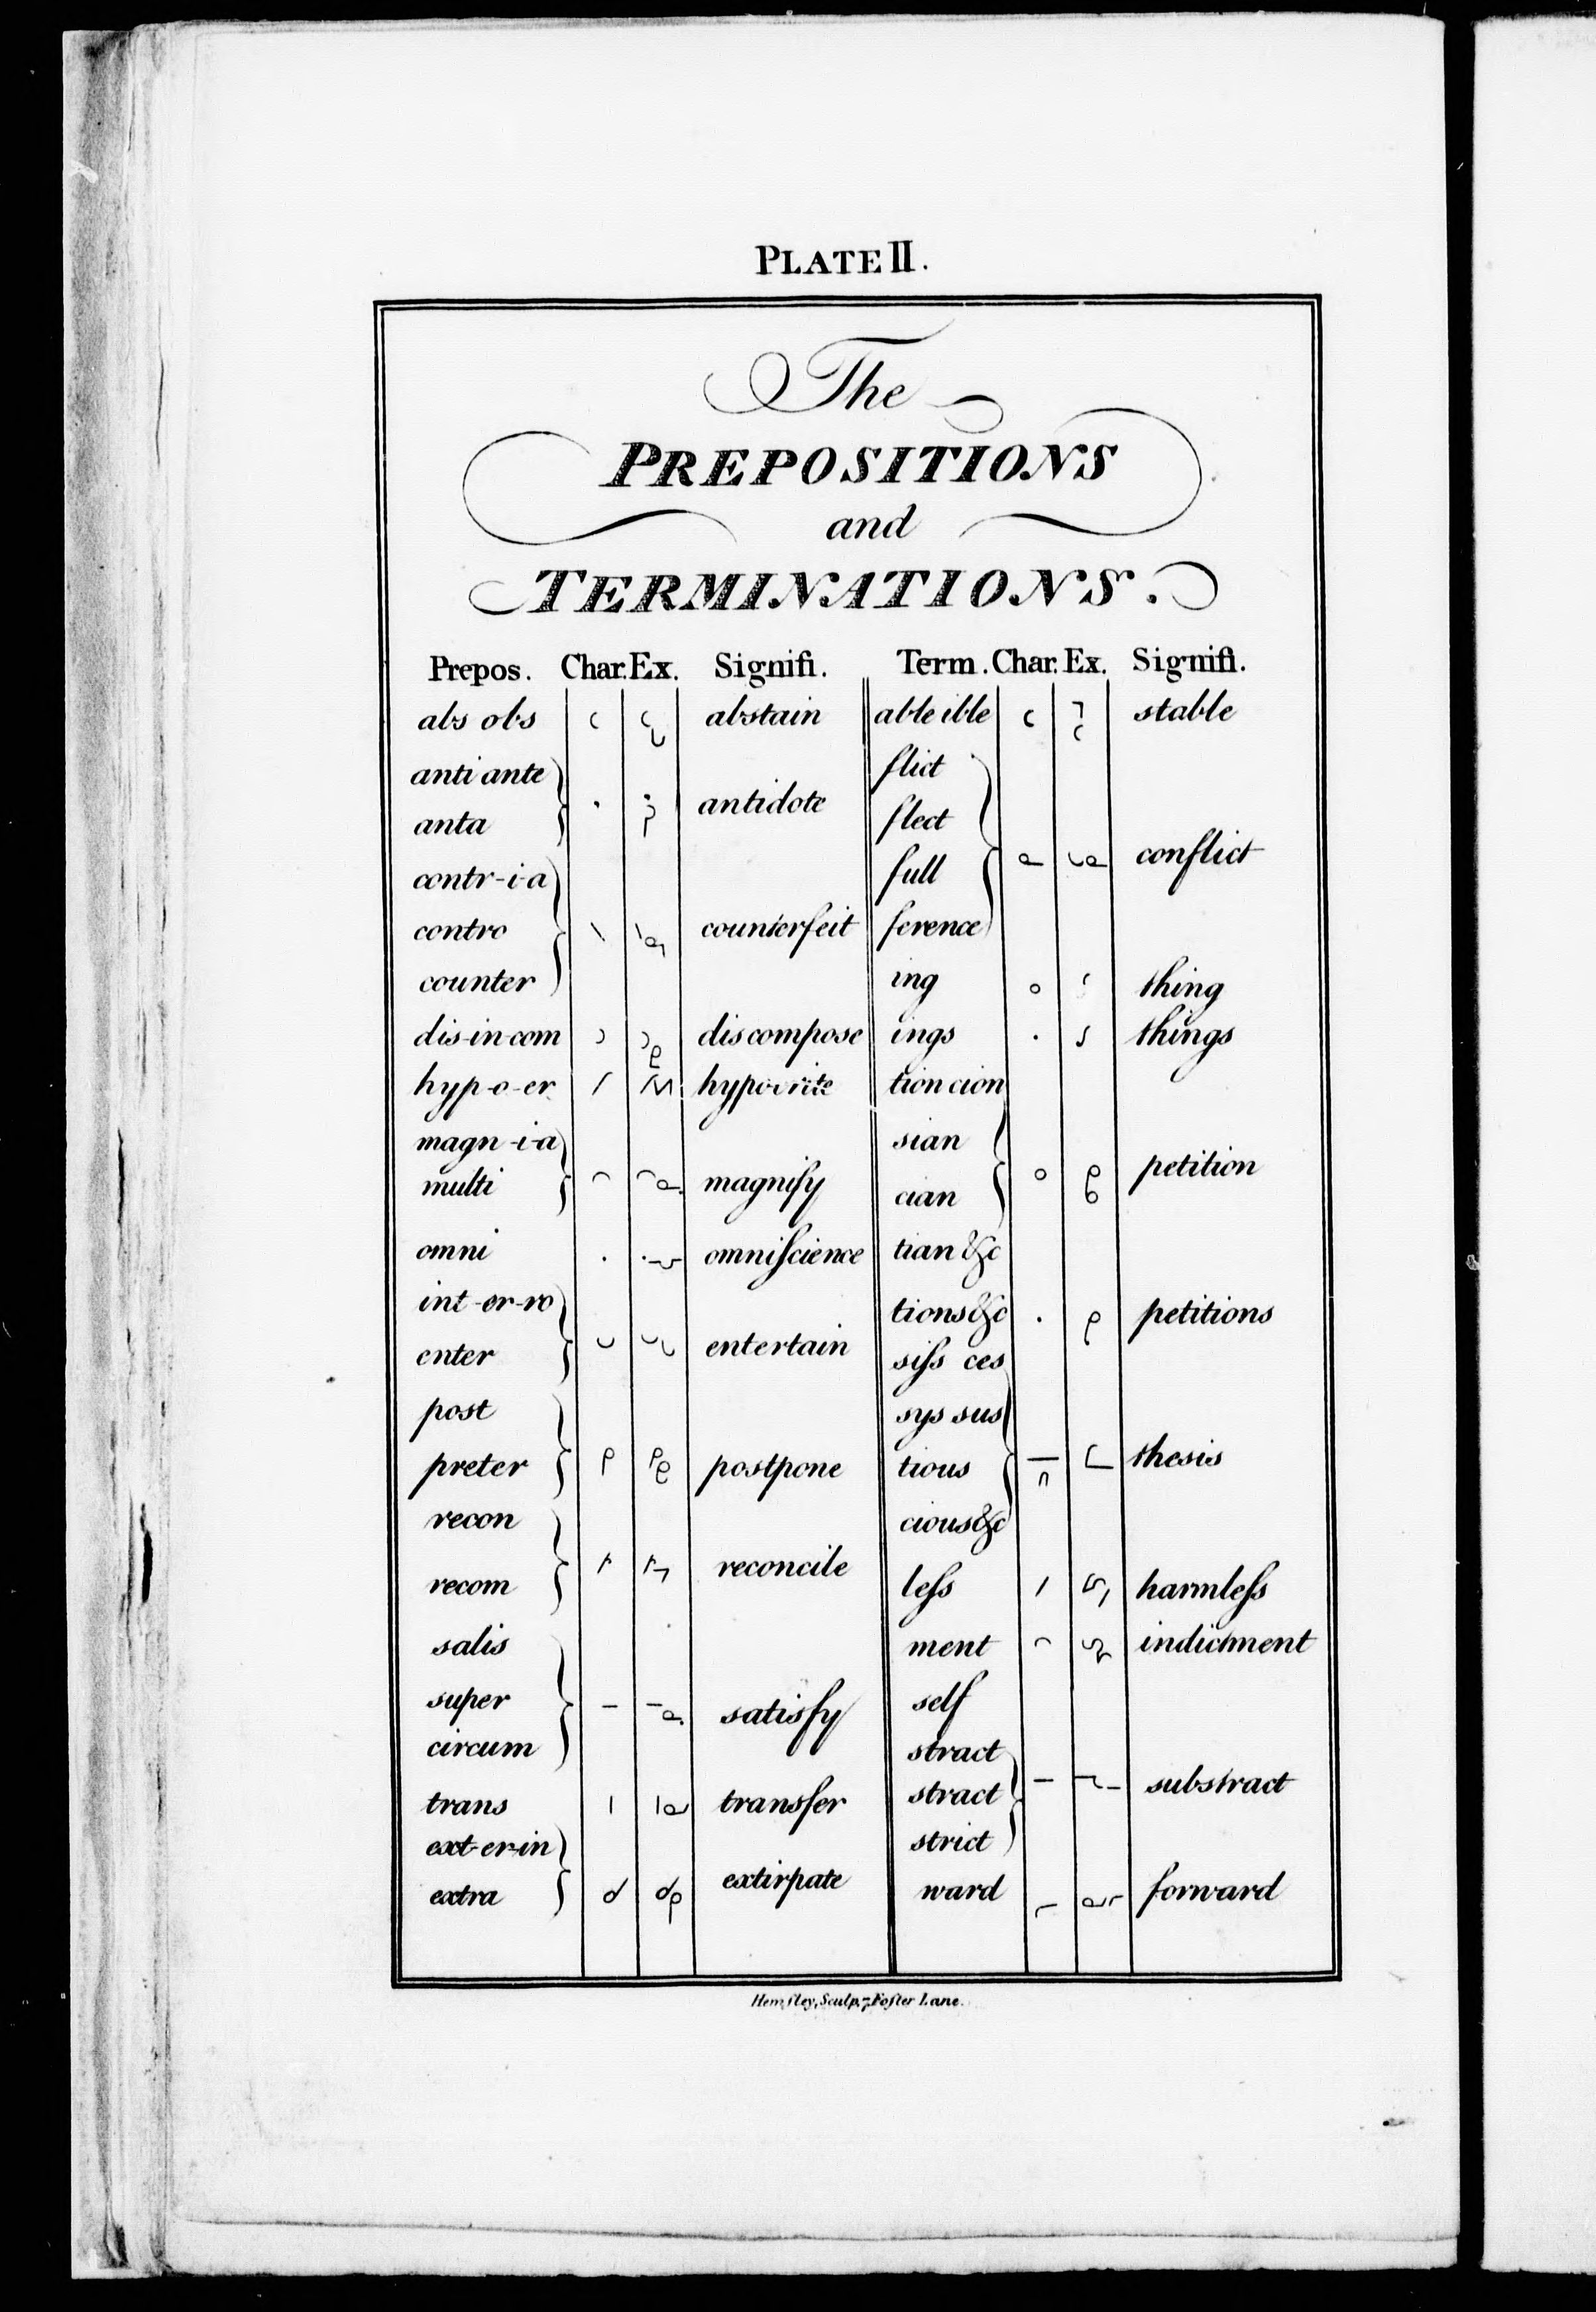 PLATE II.
The
PREPOSITIONS
and
TERMINATIONS.
Prepos. Char. Ex. Signifi. Term. Char. Ex. Signifi.
abs obs abstain
anti ante
anta antidote
contr-i-a
contro
counter counterfeit
dis-in-com discompose
hyp-o-er hypocrite
magn-i-a
multi magnify
omni omniſcience
int-er-ro
enter entertain
post
preter postpone
recon
recom reconcile
salis
super
circum satisfy
trans transfer
ext-er-in
extra extirpate
able ible stable
flict
flect
full
ference conflict
ing thing
ings things
tion cion
sian
cian petition
tian &c
tions &c petitions
siſs ces
sys sus
tious thesis
cious &c
leſs harmleſs
ment indictment
self
stract
stract substract
strict
ward forward
Hemſley, Sculp. 7, Foſter Lane.